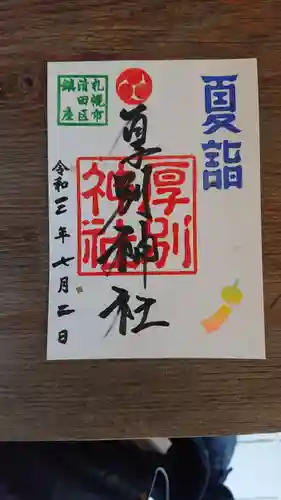 夏詣
札幌市
清田区
鎮座
厚別神社
厚別
神社
令和三年七月二日